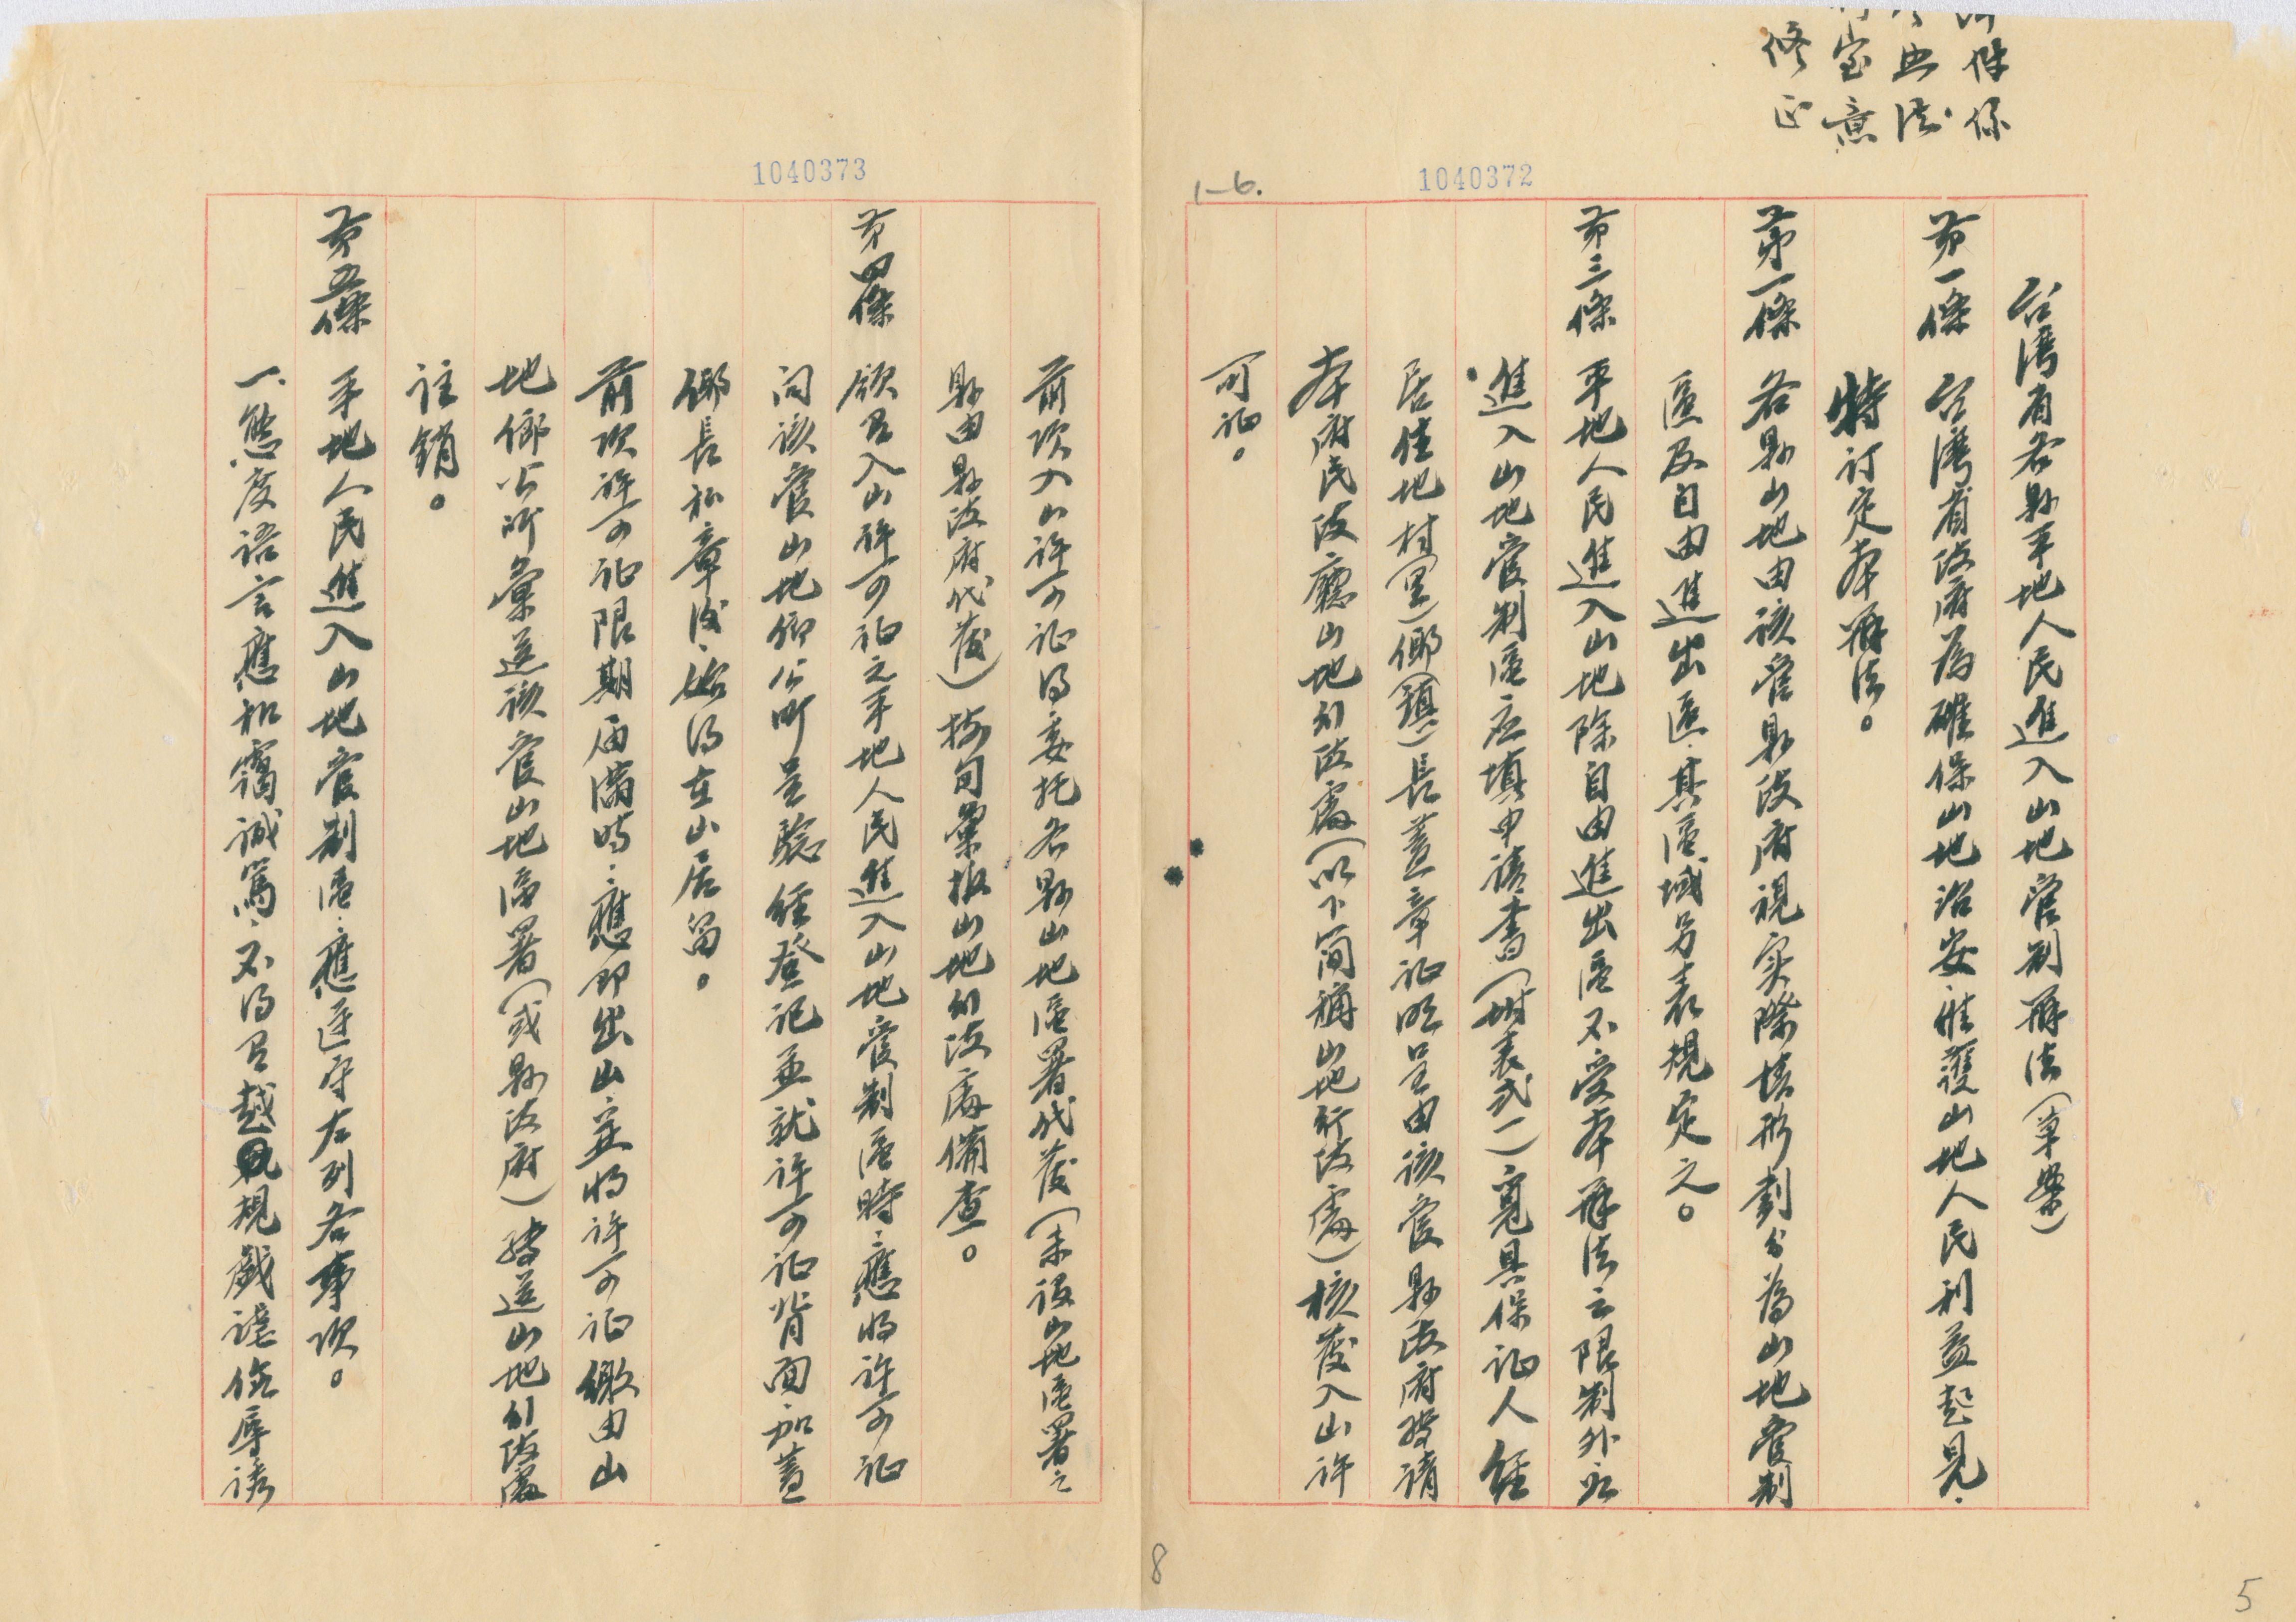 件係
典法
室意
修正
1040372
1-6.
台湾省各縣平地人民進入山地管制辦法(草案)
第一條 台灣省政府為確保山地治安、維護山地人民利益起見、
特訂定本辦法。
第一條 各縣山地由該管縣政府視实際情形劃分為山地管制
區及自由進出區、其區域另表規定之。
第三條 平地人民進入山地除自由進出區不受本辦法之限制外如
進入山地管制區应填申請書(附表式一)覓具保证人經
居住地村(里)鄉(鎮)長蓋章证明呈由該管縣政府轉請
本府民政廳山地行政處(以下简稱山地行政處)核發入山许
可证。
1040373
前项入山许可证得委托各縣山地區署代發(未设山地區署之
縣由縣政府代發)按旬彙报山地行政處備查。
第四條 领有入山許可证之平地人民進入山地管制區時、應将许可证
向該管山地鄉公所呈驗經登记並就许可证背面加蓋
鄉長私章後、始得在山居留。
前项许可证限期届滿時、應即出山並将许可证繳由山
地鄉公所彙送該管山地區署(或縣政府)轉送山地行政處
註銷。
第五條 平地人民進入山地管制區、應遵守左列各事项。
一、態度語言應和靄誠篤、不得有越規戲謔侮辱誘
8
5